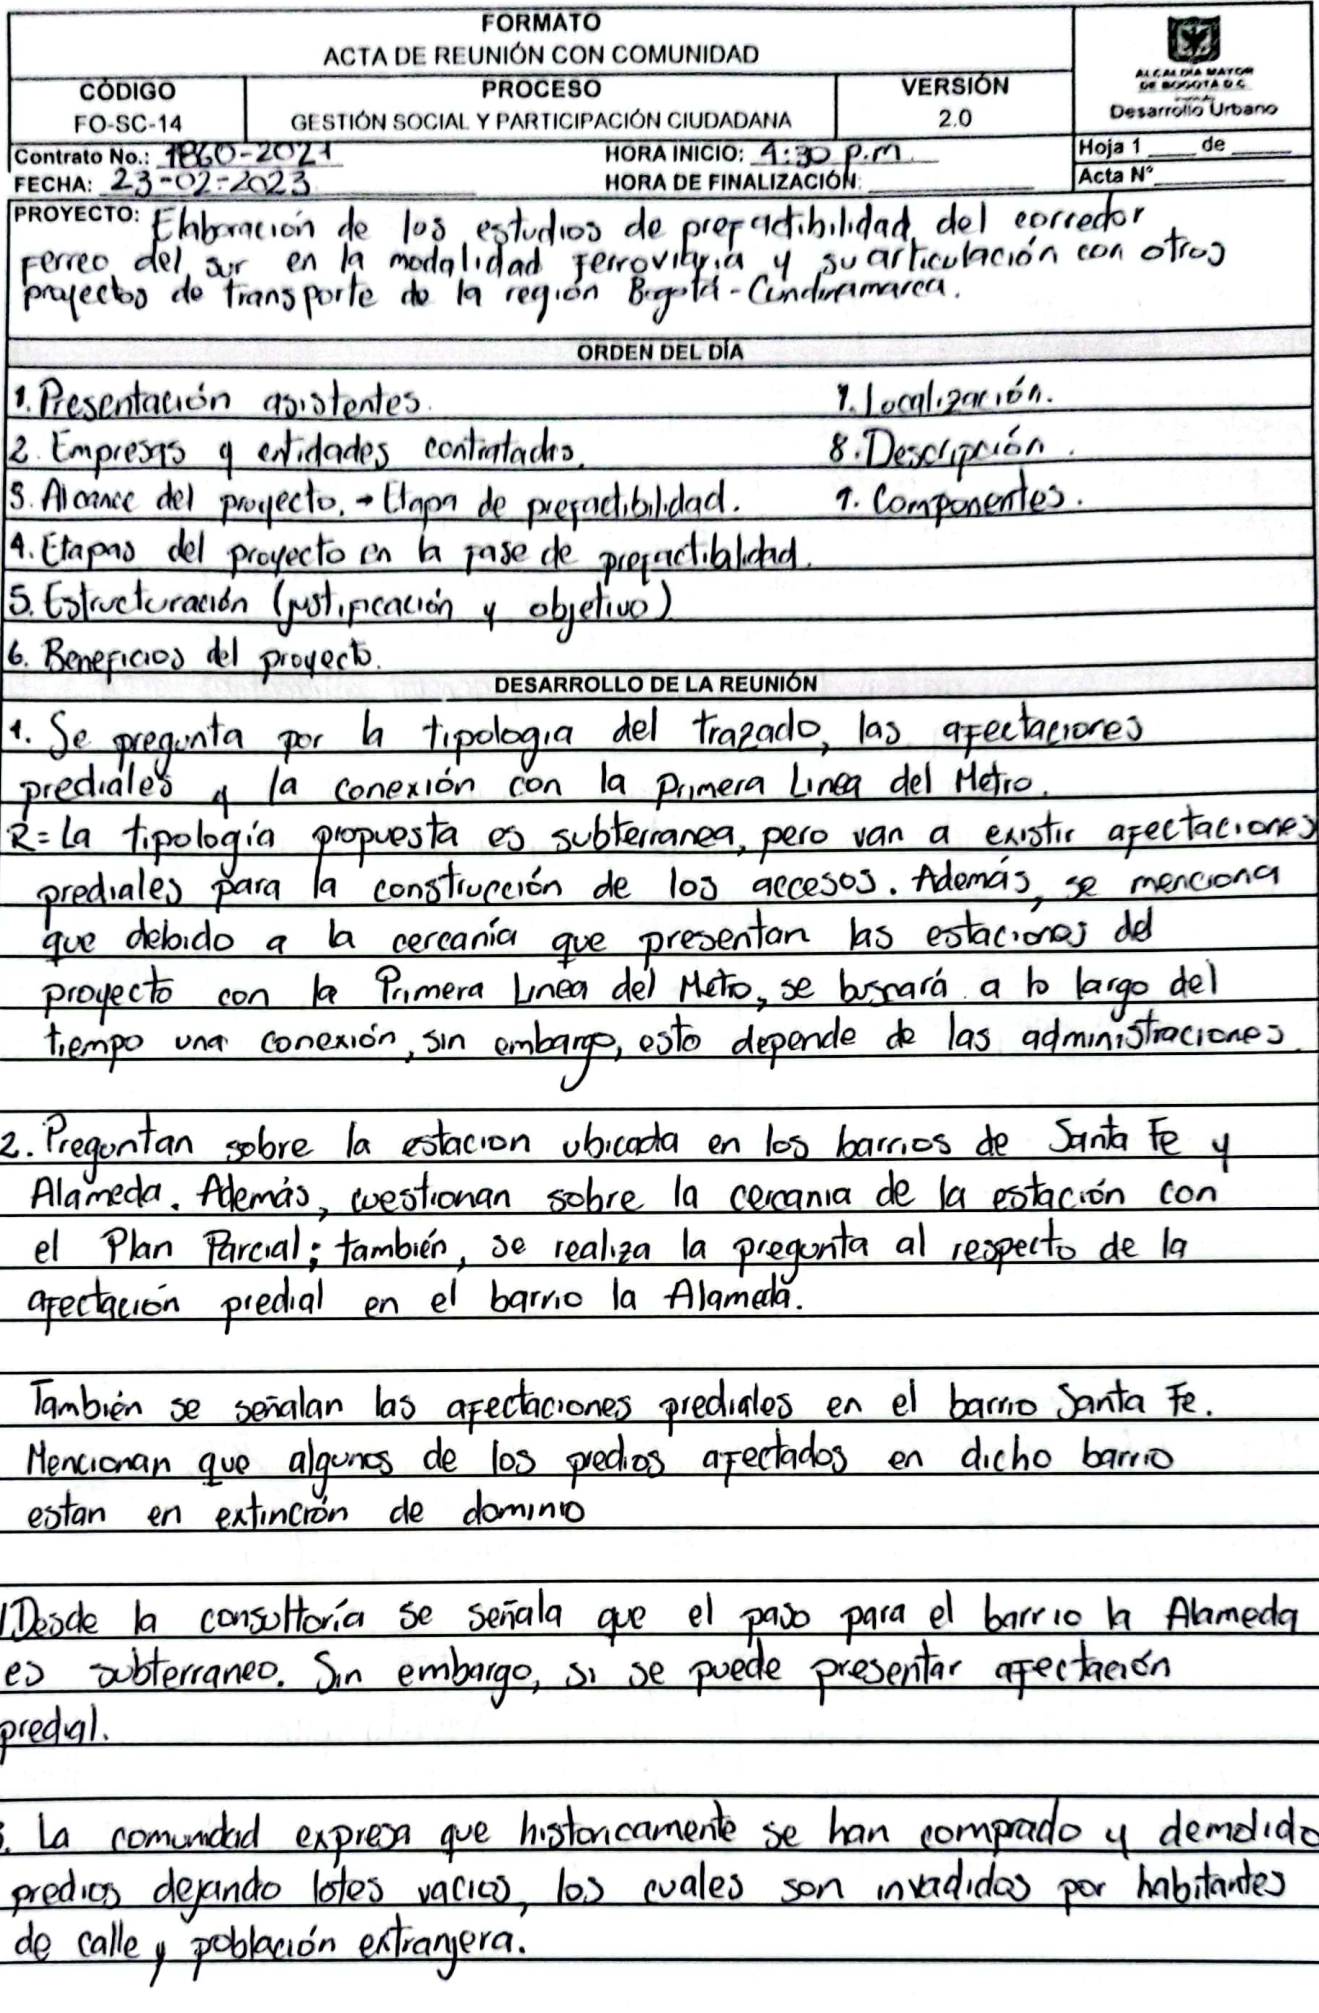 FORMATO
ACTA DE REUNIÓN CON COMUNIDAD
CÓDIGO
FO-SC-14
PROCESO
GESTIÓN SOCIAL Y PARTICIPACIÓN CIUDADANA
VERSIÓN
2.0
ALCALDÍA MAYOR
DE BOGOTÁ D.C.
Desarrollo Urbano
Contrato No.: 1860-2021
HORA INICIO: 4:30 p.m
Hoja 1 ____ de ____
FECHA: 23-02-2023
HORA DE FINALIZACIÓN:
Acta N°
PROYECTO: Elaboración de los estudios de prefactibilidad del corredor
ferreo del sur en la modalidad ferroviaria y su articulación con otros
proyectos de transporte de la región Bogotá-Cundinamarca.
ORDEN DEL DÍA
1. Presentación asistentes.
7. Localización.
2. Empresas y entidades contratadas.
8. Descripción.
3. Alcance del proyecto. → Etapa de prefactibilidad.
9. Componentes.
4. Etapas del proyecto en la fase de prefactibilidad.
5. Estructuración (justificación y objetivo)
6. Beneficios del proyecto.
DESARROLLO DE LA REUNIÓN
1. Se pregunta por la tipologia del trazado, las afectaciones
prediales y la conexión con la Primera Linea del Metro.
R= La tipología propuesta es subterranea, pero van a existir afectaciones
prediales para la construcción de los accesos. Además, se menciona
que debido a la cercanía que presentan las estaciones del
proyecto con la Primera Linea del Metro, se buscará a lo largo del
tiempo una conexión, sin embargo, esto depende de las administraciones.
2. Preguntan sobre la estacion ubicada en los barrios de Santa Fe y
Alameda. Además, cuestionan sobre la cercania de la estación con
el Plan Parcial; también, se realiza la pregunta al respecto de la
afectación predial en el barrio la Alameda.
También se señalan las afectaciones prediales en el barrio Santa Fe.
Mencionan que algunos de los predios afectados en dicho barrio
estan en extinción de dominio
Desde la consultoría se señala que el paso para el barrio la Alameda
es subterraneo. Sin embargo, si se puede presentar afectación
predial.
3. La comunidad expresa que historicamente se han comprado y demolido
predios dejando lotes vacios, los cuales son invadidos por habitantes
de calle y población extranjera.